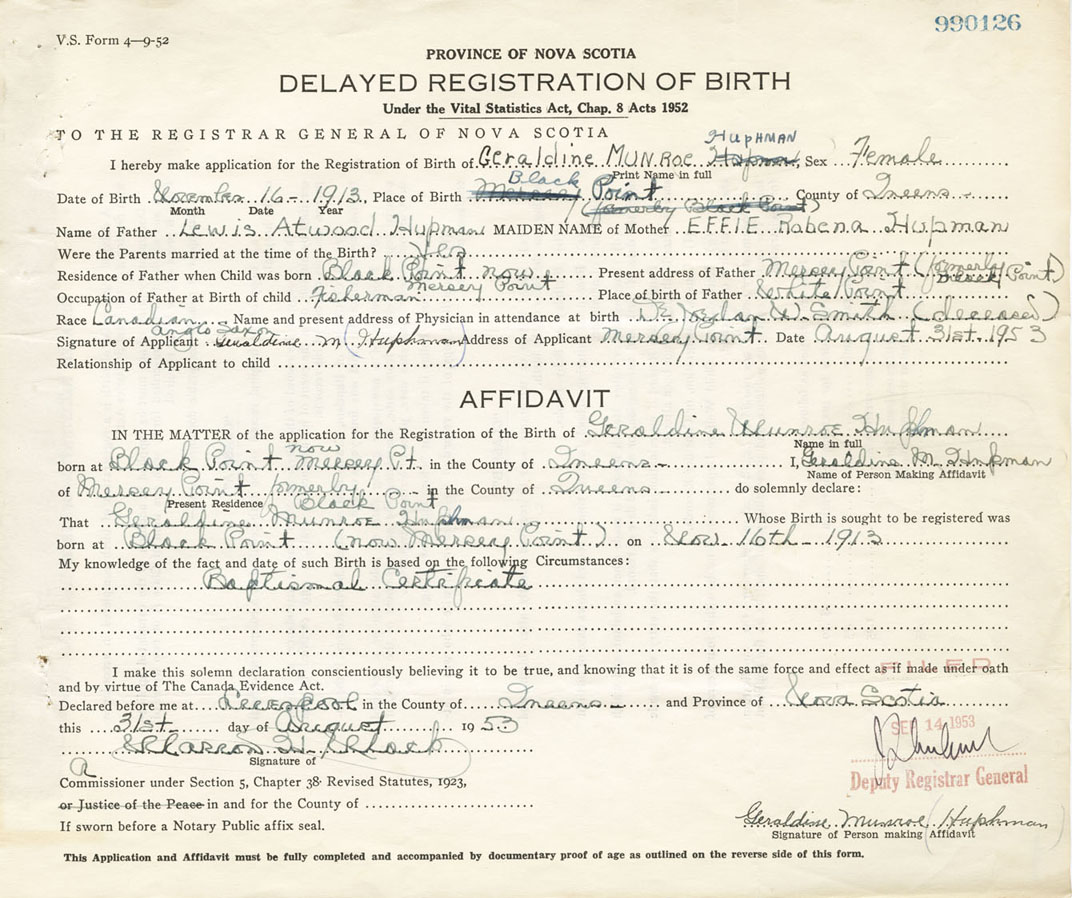 990126
V.S. Form 4—9-52
PROVINCE OF NOVA SCOTIA
DELAYED REGISTRATION OF BIRTH
Under the Vital Statistics Act, Chap. 8 Acts 1952
TO THE REGISTRAR GENERAL OF NOVA SCOTIA
HUPHMAN
I hereby make application for the Registration of Birth of Geraldine MUNRoe Hupman, Sex Female
Print Name in full
Black
Date of Birth November 16 - 1913, Place of Birth Mersey Point County of Queens
(formerly Black Point)
Month Date Year
Name of Father Lewis Atwood Hupman MAIDEN NAME of Mother EFFIE Robena Hupman
Were the Parents married at the time of the Birth? Yes
Residence of Father when Child was born Black Point now Mersey Point Present address of Father Mersey Point (formerly Black Point)
Occupation of Father at Birth of child Fisherman Place of birth of Father White Point
Race Canadian Name and present address of Physician in attendance at birth DR. W. Smith (deceased)
Anglo Saxon
Signature of Applicant Geraldine M (Huphman) Address of Applicant Mersey Point Date August 31st 1953
Relationship of Applicant to child
AFFIDAVIT
IN THE MATTER of the application for the Registration of the Birth of Geraldine Munroe Huphman
Name in full
born at Black Point now Mersey Pt. in the County of Queens I, Geraldine M. Huphman
Name of Person Making Affidavit
of Mersey Point formerly Black Point in the County of Queens do solemnly declare:
Present Residence
That Geraldine Munroe Huphman Whose Birth is sought to be registered was
born at Black Point (now Mersey Point) on Nov. 16th - 1913
My knowledge of the fact and date of such Birth is based on the following Circumstances:
Baptismal Certificate
I make this solemn declaration conscientiously believing it to be true, and knowing that it is of the same force and effect as if made under oath
and by virtue of The Canada Evidence Act.
FILED
Declared before me at Liverpool in the County of Queens and Province of Nova Scotia
this 31st day of August 1953
SEP 14 1953
Signature of
Deputy Registrar General
A
Commissioner under Section 5, Chapter 38 Revised Statutes, 1923,
or Justice of the Peace in and for the County of
If sworn before a Notary Public affix seal.
Geraldine Munroe (Huphman)
Signature of Person making Affidavit
This Application and Affidavit must be fully completed and accompanied by documentary proof of age as outlined on the reverse side of this form.